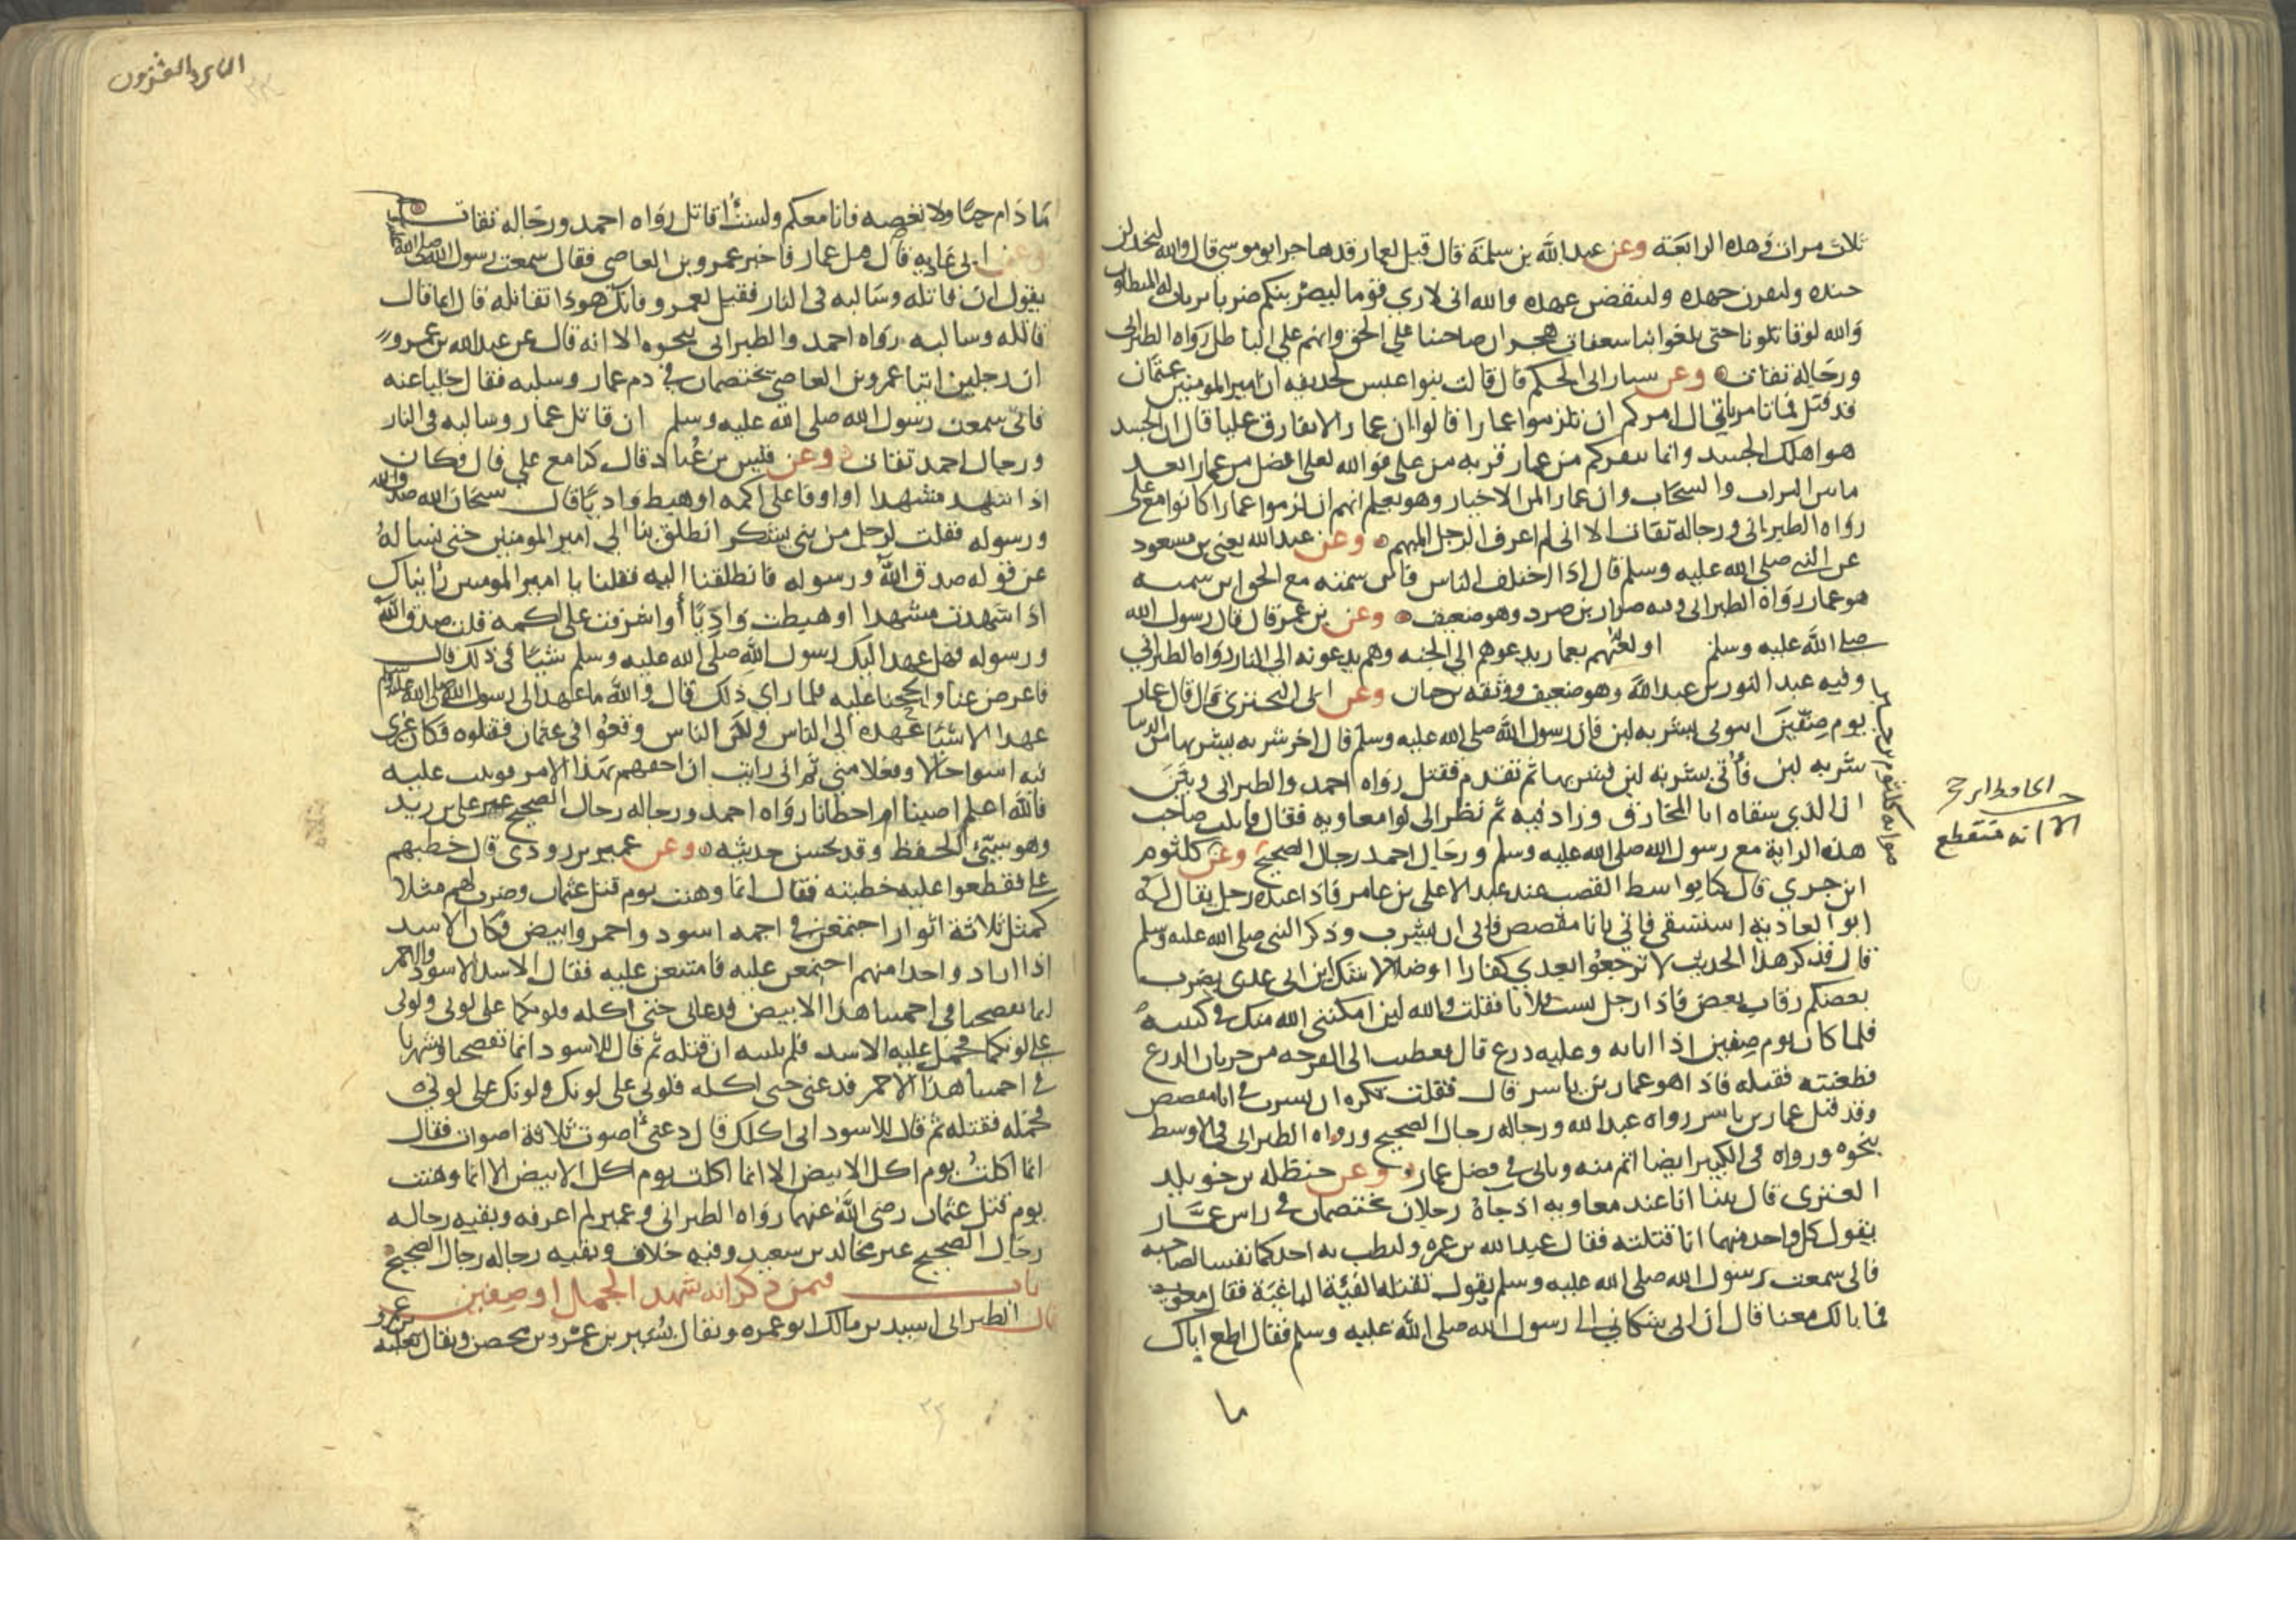 ثلاث مرات وهذه الرابعة وعن عبد الله بن سلمة قال قيل لعمار قد هاجر ابو موسى قال والله ليخذلن
جنده وليفرن جهده ولينقضن عهده والله اني لارى قوما ليضربنكم ضربا يرتاب له المبطلون
والله لو قاتلونا حتى بلغوا بنا سعفات هجر ان صاحبنا على الحق وانهم على الباطل رواه الطبراني
ورجاله ثقات وعن سيار ابي الحكم قال قالت بنوا عبس لحذيفة ان امير المومنين عثمان
قد قتل فما تامرنا قال امركم ان تلزموا عمارا قالوا ان عمارا لا يفارق عليا قال ان الحسد
هو اهلك الجسد وانما ينفركم من عمار قربه من على فوالله لعلى افضل من عمار ابعد
ما بين التراب والسحاب وان عمارا لمن الاخيار وهو يعلم انهم ان لزموا عمارا كانوا مع على
رواه الطبراني ورجاله ثقات الا اني لم اعرف الرجل المبهم وعن عبد الله يعني بن مسعود
عن النبي صلى الله عليه وسلم قال اذا اختلف الناس فابن سمية مع الحق ابن سمية
هو عمار رواه الطبراني وفيه ضرار بن صرد وهو ضعيف وعن بن عمر قال قال رسول الله
صلى الله عليه وسلم اولعتهم بعمار يدعوهم الى الجنه وهم يدعونه الى النار رواه الطبراني
وفيه عبد النور بن عبد الله وهو ضعيف ووثقه بن حبان وعن ابي البختري قال قال عمار
يوم صفين ايتوني بشربه لبن فان رسول الله صلى الله عليه وسلم قال اخر شربه يشربها من الدنيا
شربه لبن فاتي بشربه لبن فشربها ثم تقدم فقتل رواه احمد والطبراني وبين
ان الذي سقاه ابا المخارق وزاد فيه ثم نظر الى لوا معاويه فقال قاتلت صاحب
هذه الراية مع رسول الله صلى الله عليه وسلم ورجال احمد رجال الصحيح وعن كلثوم
الا انه منقطع
ابن جبري قال كنا بواسط القصب عند عبد الاعلى بن عامر فاذا عنده رجل يقال له
ابو الغادية استسقى فاتي بانا مفضض فابى ان يشرب وذكر النبي صلى الله عليه وسلم
قال فذكر هذا الحديث لا ترجعوا بعدي كفارا او ضلالا شك ابن ابي عدي يضرب
بعضكم رقاب بعض فاذا رجل يسب فلانا فقلت والله لين امكنني الله منك في كتيبة
فلما كان يوم صفين اذا انا به وعليه درع قال ففطنت الى الفرجه من جربان الدرع
فطعنته فقتلته فاذا هو عمار بن ياسر قال فقلت تكره ان تشرب في انا مفضض
وقد قتل عمار بن ياسر رواه عبد الله ورجاله رجال الصحيح ورواه الطبراني في الاوسط
بنحوه ورواه في الكبير ايضا اتم منه وياتي في فضل عمار وعن حنظله بن خويلد
العنزي قال بينا انا عند معاويه اذ جاه رجلان يختصمان في راس عمار
يقول كل واحد منهما انا قتلته فقال عبد الله بن عمرو ليطب به احدكما نفسا لصاحبه
فاني سمعت رسول الله صلى الله عليه وسلم يقول تقتله الفيئة الباغية فقال معاويه
فما بالك معنا قال ان ابي شكاني الى رسول الله صلى الله عليه وسلم فقال اطع اباك
ما
ما دام حيا ولا تعصه فانا معكم ولست اقاتل رواه احمد ورجاله ثقات
وعن ابي غاديه قال قتل عمار فاخبر عمرو بن العاصي فقال سمعت رسول الله صلى الله عليه
يقول ان قاتله وسالبه في النار فقيل لعمرو فانك هو ذا تقاتله قال انما قال
قاتله وسالبه رواه احمد والطبراني بنحوه الا انه قال عن عبد الله بن عمرو
ان رجلين اتيا عمرو بن العاصي يختصمان في دم عمار وسلبه فقال خليا عنه
فاني سمعت رسول الله صلى الله عليه وسلم ان قاتل عمار وسالبه في النار
ورجال احمد ثقات وعن قيس بن عباد قال كنا مع علي قال فكان
اذا شهد مشهدا او اوفا على اكمه او هبط واديا قال سبحان الله صدق الله
ورسوله فقلت لرجل من بني يشكر انطلق بنا الى امير المومنين حتى نساله
عن قوله صدق الله ورسوله فانطلقنا اليه فقلنا يا امير المومنين رايناك
اذا شهدت مشهدا او هبطت واديا او اشرفت على اكمه قلت صدق الله
ورسوله فهل عهد اليك رسول الله صلى الله عليه وسلم شيا في ذلك قال
فاعرض عنا والححنا عليه فلما راى ذلك قال والله ما عهد الى رسول الله صلى الله عليه وسلم
عهدا الا شيا عهده الى الناس ولكن الناس وقعوا في عثمان فقتلوه فكان غيري
فيه اسوا حالا وفعلا مني ثم اني رايت ان احقهم بهذا الامر فوثبت عليه
فالله اعلم اصبنا ام اخطانا رواه احمد ورجاله رجال الصحيح غير على بن زيد
وهو سيئ الحفظ وقد يحسن حديثه وعن عمير بن رودى قال خطبهم
على فقطعوا عليه خطبته فقال انما وهنت يوم قتل عثمان وضرب لهم مثلا
كمثل ثلاثة اثوار اجتمعن في اجمه اسود واحمر وابيض فكان الاسد
اذا اراد واحدا منهم اجتمعن عليه فامتنعن عليه فقال الاسد للاسود والاحمر
انما يفضحنا في اجمتنا هذا الابيض فدعاني حتى اكله فلونكما على لوني ولوني
على لونكما فحمل عليه الاسد فلم يلبثه ان قتله ثم قال للاسود انما يفضحنا ويشهرنا
في اجمتنا هذا الاحمر فدعني حتى اكله فلوني على لونك ولونك على لوني
فحمله فقتله ثم قال للاسود اني اكلك قال دعني اصوت ثلاثة اصوات فقال
انما اكلت يوم اكل الابيض الا انما اكلت يوم اكل الابيض الا انما وهنت
يوم قتل عثمان رضى الله عنهما رواه الطبراني وعمير لم اعرفه وبقيه رجاله
رجال الصحيح غير مجالد بن سعيد وفيه خلاف وبقيه رجاله رجال الصحيح
باب فيمن ذكر انه شهد الجمل او صفين
قال الطبراني اسيد بن مالك ابو عمره ويقال بشير بن عمرو بن محصن ويقال ثعلبه